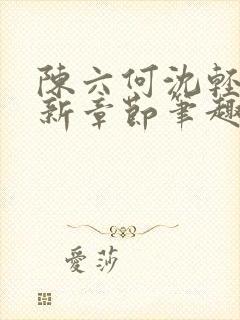 陳六何沈輕
新章節筆趣
愛莎